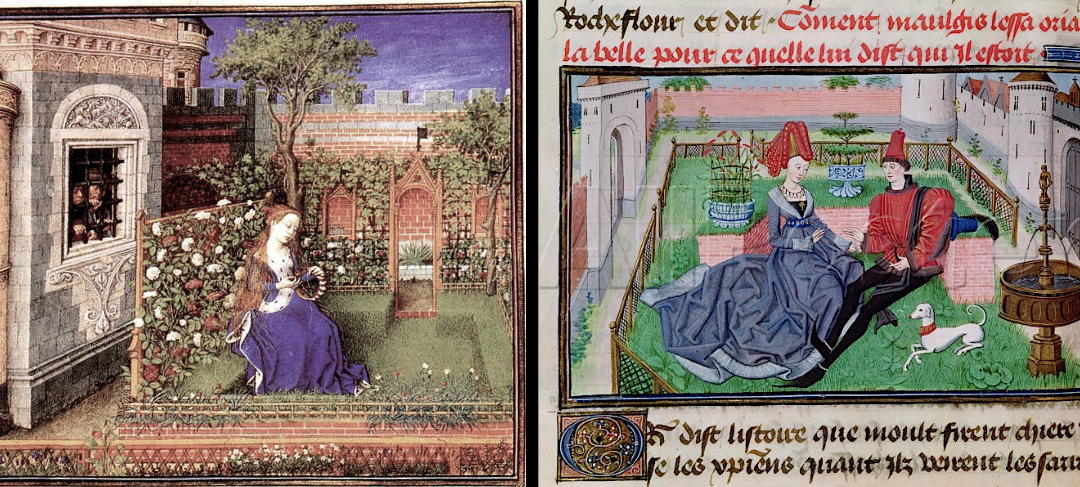 Rocheflour et dit · Cõment maulgis lessa oria
la belle pour ce quelle lui dist qui Jl estoit
Or dist listoire que moult firent chiere
se les xp̃iens quant Jlz virent les sarr